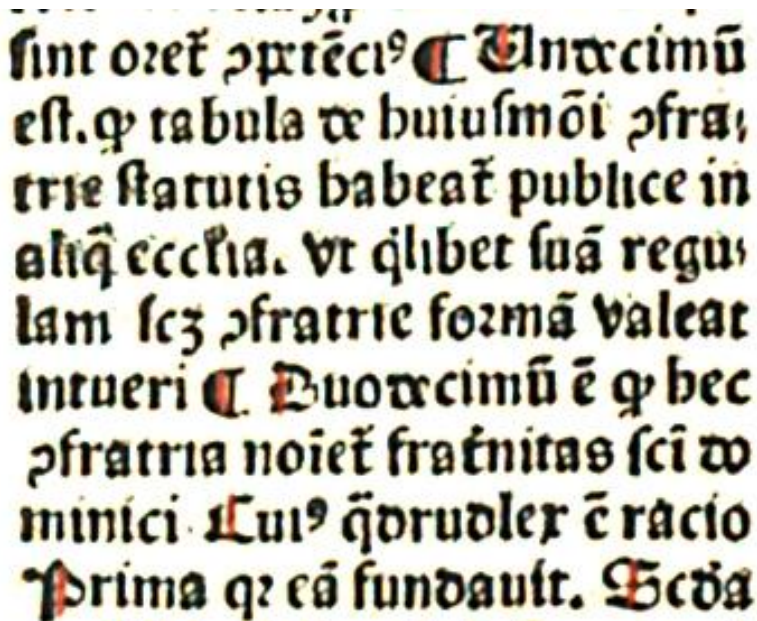 ſint oꝛet᷑ ꝯp̲tēciꝰ ¶ Undecimū
eſt. ꝙ tabula de huiuſmōi ꝯfra⸗
trie ſtatutis habeat᷑ publice in
aliq̄ eccl̓ia. vt q̇libet ſuā regu⸗
lam ſcꝫ ꝯfratrie foꝛmā valeat
intueri ¶ Duodecimū ē ꝙ hec
ꝯfratria noīet᷑ frat̓nitas ſcī do
minici Cuiꝰ q̄druplex ē racio
Prima qꝛ eā fundauit. Scd̓a